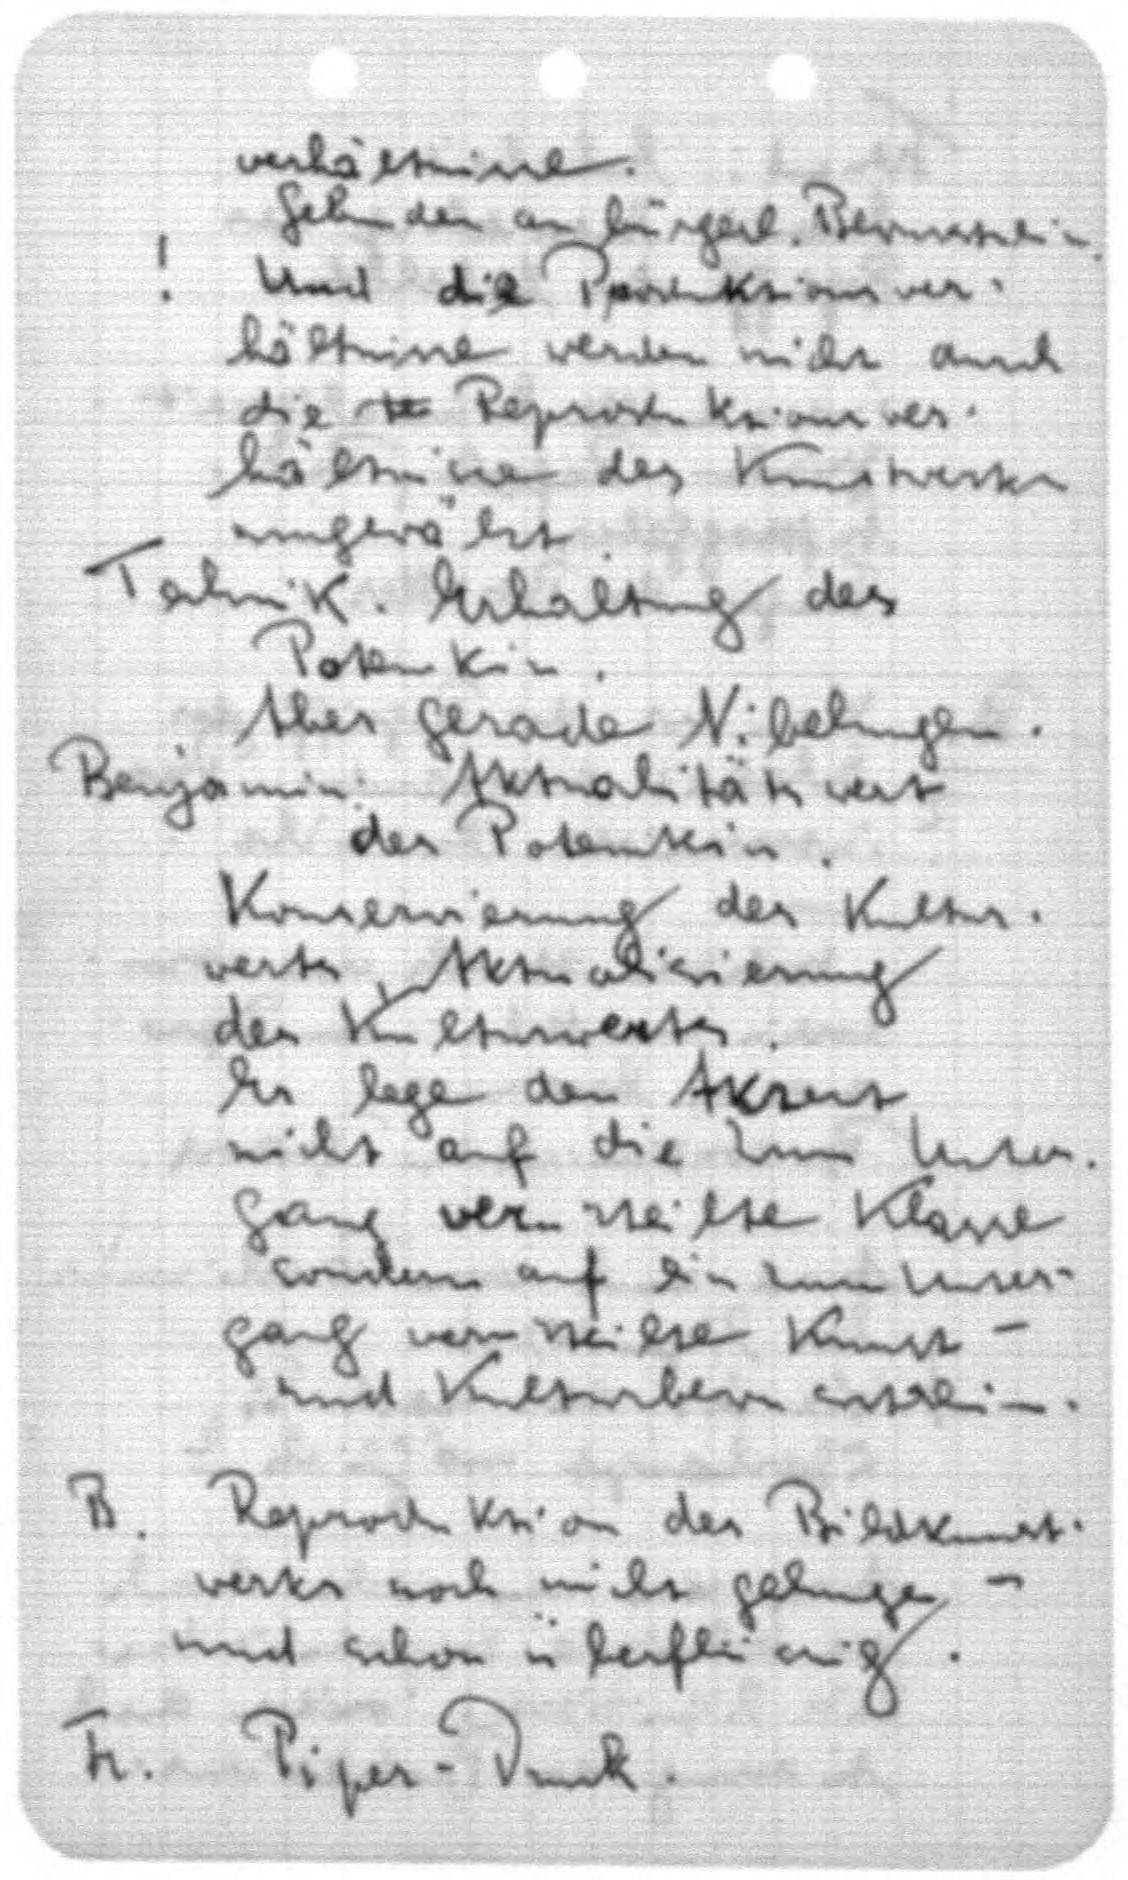 verhältnisse.
Gebunden an bürgerl. Bewusstsein.
! Und die Produktionsver-
hältnisse werden nicht durch
die Reproduktionsver-
hältnisse des Kunstwerks
umgewälzt.
Technik. Erhaltung des
Potemkin.
Aber gerade Nibelungen.
Benjamin: Aktualitätswert
des Potemkin.
Konservierung des Kultur-
werts, Aktualisierung
des Kulturwerts.
Er lege den Akzent
nicht auf die zum Unter-
gang verurteilte Klasse
sondern auf ein zum Unter-
gang verurteiltes Kunst-
und Kulturbewusstsein.
B. Reproduktion des Bildkunst-
werks noch nicht gelungen –
und schon überflüssig.
Fr. Piper-Druck.